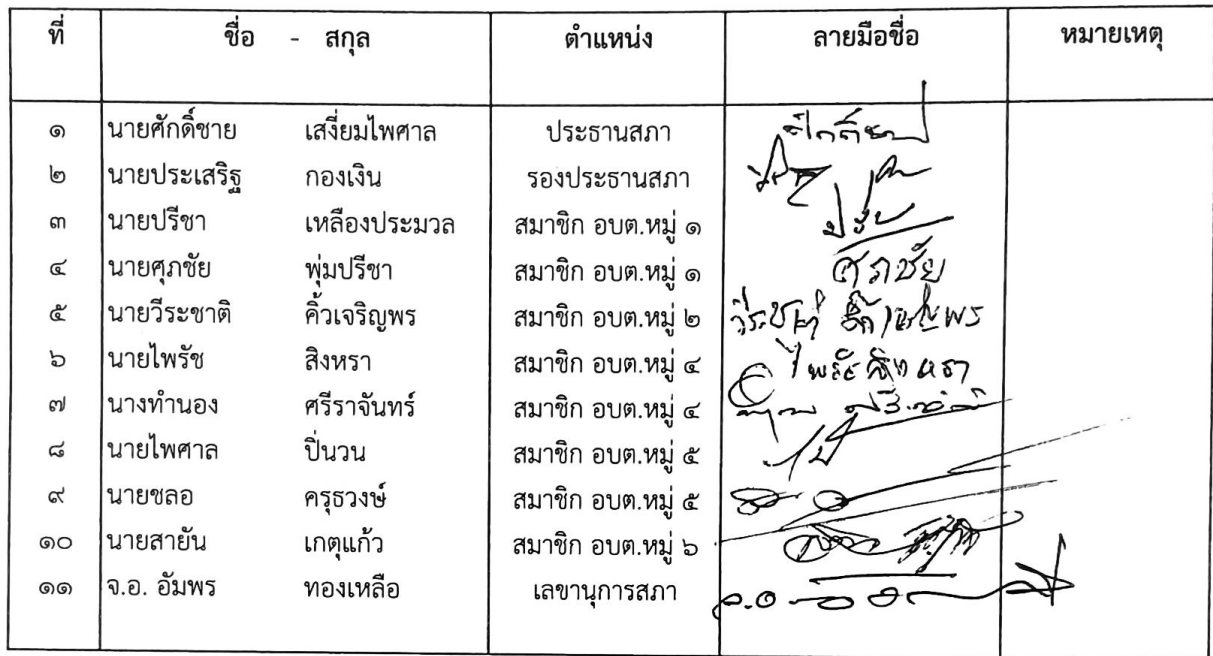 ที่ ชื่อ - สกุล ตำแหน่ง ลายมือชื่อ หมายเหตุ
๑ นายศักดิ์ชาย เสงี่ยมไพศาล ประธานสภา
๒ นายประเสริฐ กองเงิน รองประธานสภา
๓ นายปรีชา เหลืองประมวล สมาชิก อบต.หมู่ ๑
๔ นายศุภชัย พุ่มปรีชา สมาชิก อบต.หมู่ ๑ ศุภชัย
๕ นายวีระชาติ คิ้วเจริญพร สมาชิก อบต.หมู่ ๒ วีระชาติ คิ้วเจริญพร
๖ นายไพรัช สิงหรา สมาชิก อบต.หมู่ ๔ ไพรัช สิงหรา
๗ นางทำนอง ศรีราจันทร์ สมาชิก อบต.หมู่ ๔
๘ นายไพศาล ปิ่นวน สมาชิก อบต.หมู่ ๕
๙ นายชลอ ครุธวงษ์ สมาชิก อบต.หมู่ ๕
๑๐ นายสายัน เกตุแก้ว สมาชิก อบต.หมู่ ๖
๑๑ จ.อ. อัมพร ทองเหลือ เลขานุการสภา